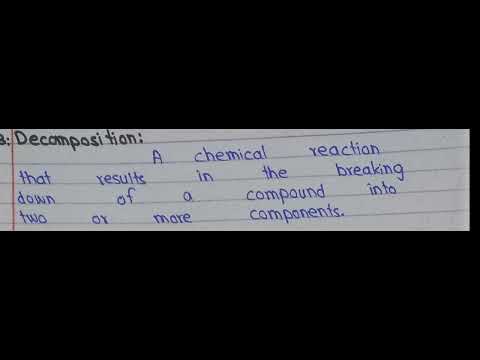 3: Decomposition:
A chemical reaction
that results in the breaking
down of a compound into
two or more components.